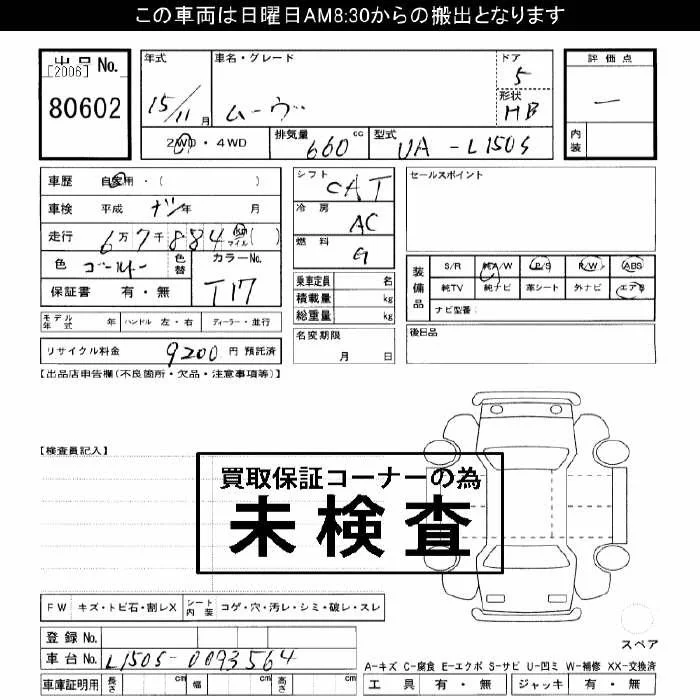 この車両は日曜日AM8:30からの搬出となります
出品 No.
[2006]
80602
年式 15/11 月
車名・グレード ムーヴ
ドア 5
形状 HB
評価点 ―
内装
2WD・4WD
排気量 660 cc
型式 UA - L150S
車歴 自家用・( )
車検 平成 ナシ 年 月
走行 6万7千884 km マイル ( )
色 ゴールド 色替
カラーNo. T17
保証書 有・無
シフト CAT
冷房 AC
燃料 G
乗車定員 名
積載量 kg
総重量 kg
セールスポイント
装備品
S/R 純A/W P/S R/W ABS
純TV 純ナビ 革シート 外ナビ エアB
ナビ型番:
モデル年式 年 ハンドル 左・右 ディーラー・並行
名変期限 月 日
後日品
リサイクル料金 9200 円 預託済
【出品店申告欄(不良箇所・欠品・注意事項等)】
【検査員記入】
買取保証コーナーの為
未検査
FW キズ・トビ石・割レX シート内装 コゲ・穴・汚レ・シミ・破レ・スレ
登録 No.
車台 No. L150S-0093564
車庫証明用 長さ cm 幅 cm 高さ cm
スペア
A-キズ C-腐食 E-エクボ S-サビ U-凹ミ W-補修 XX-交換済
工具 有・無 ジャッキ 有・無